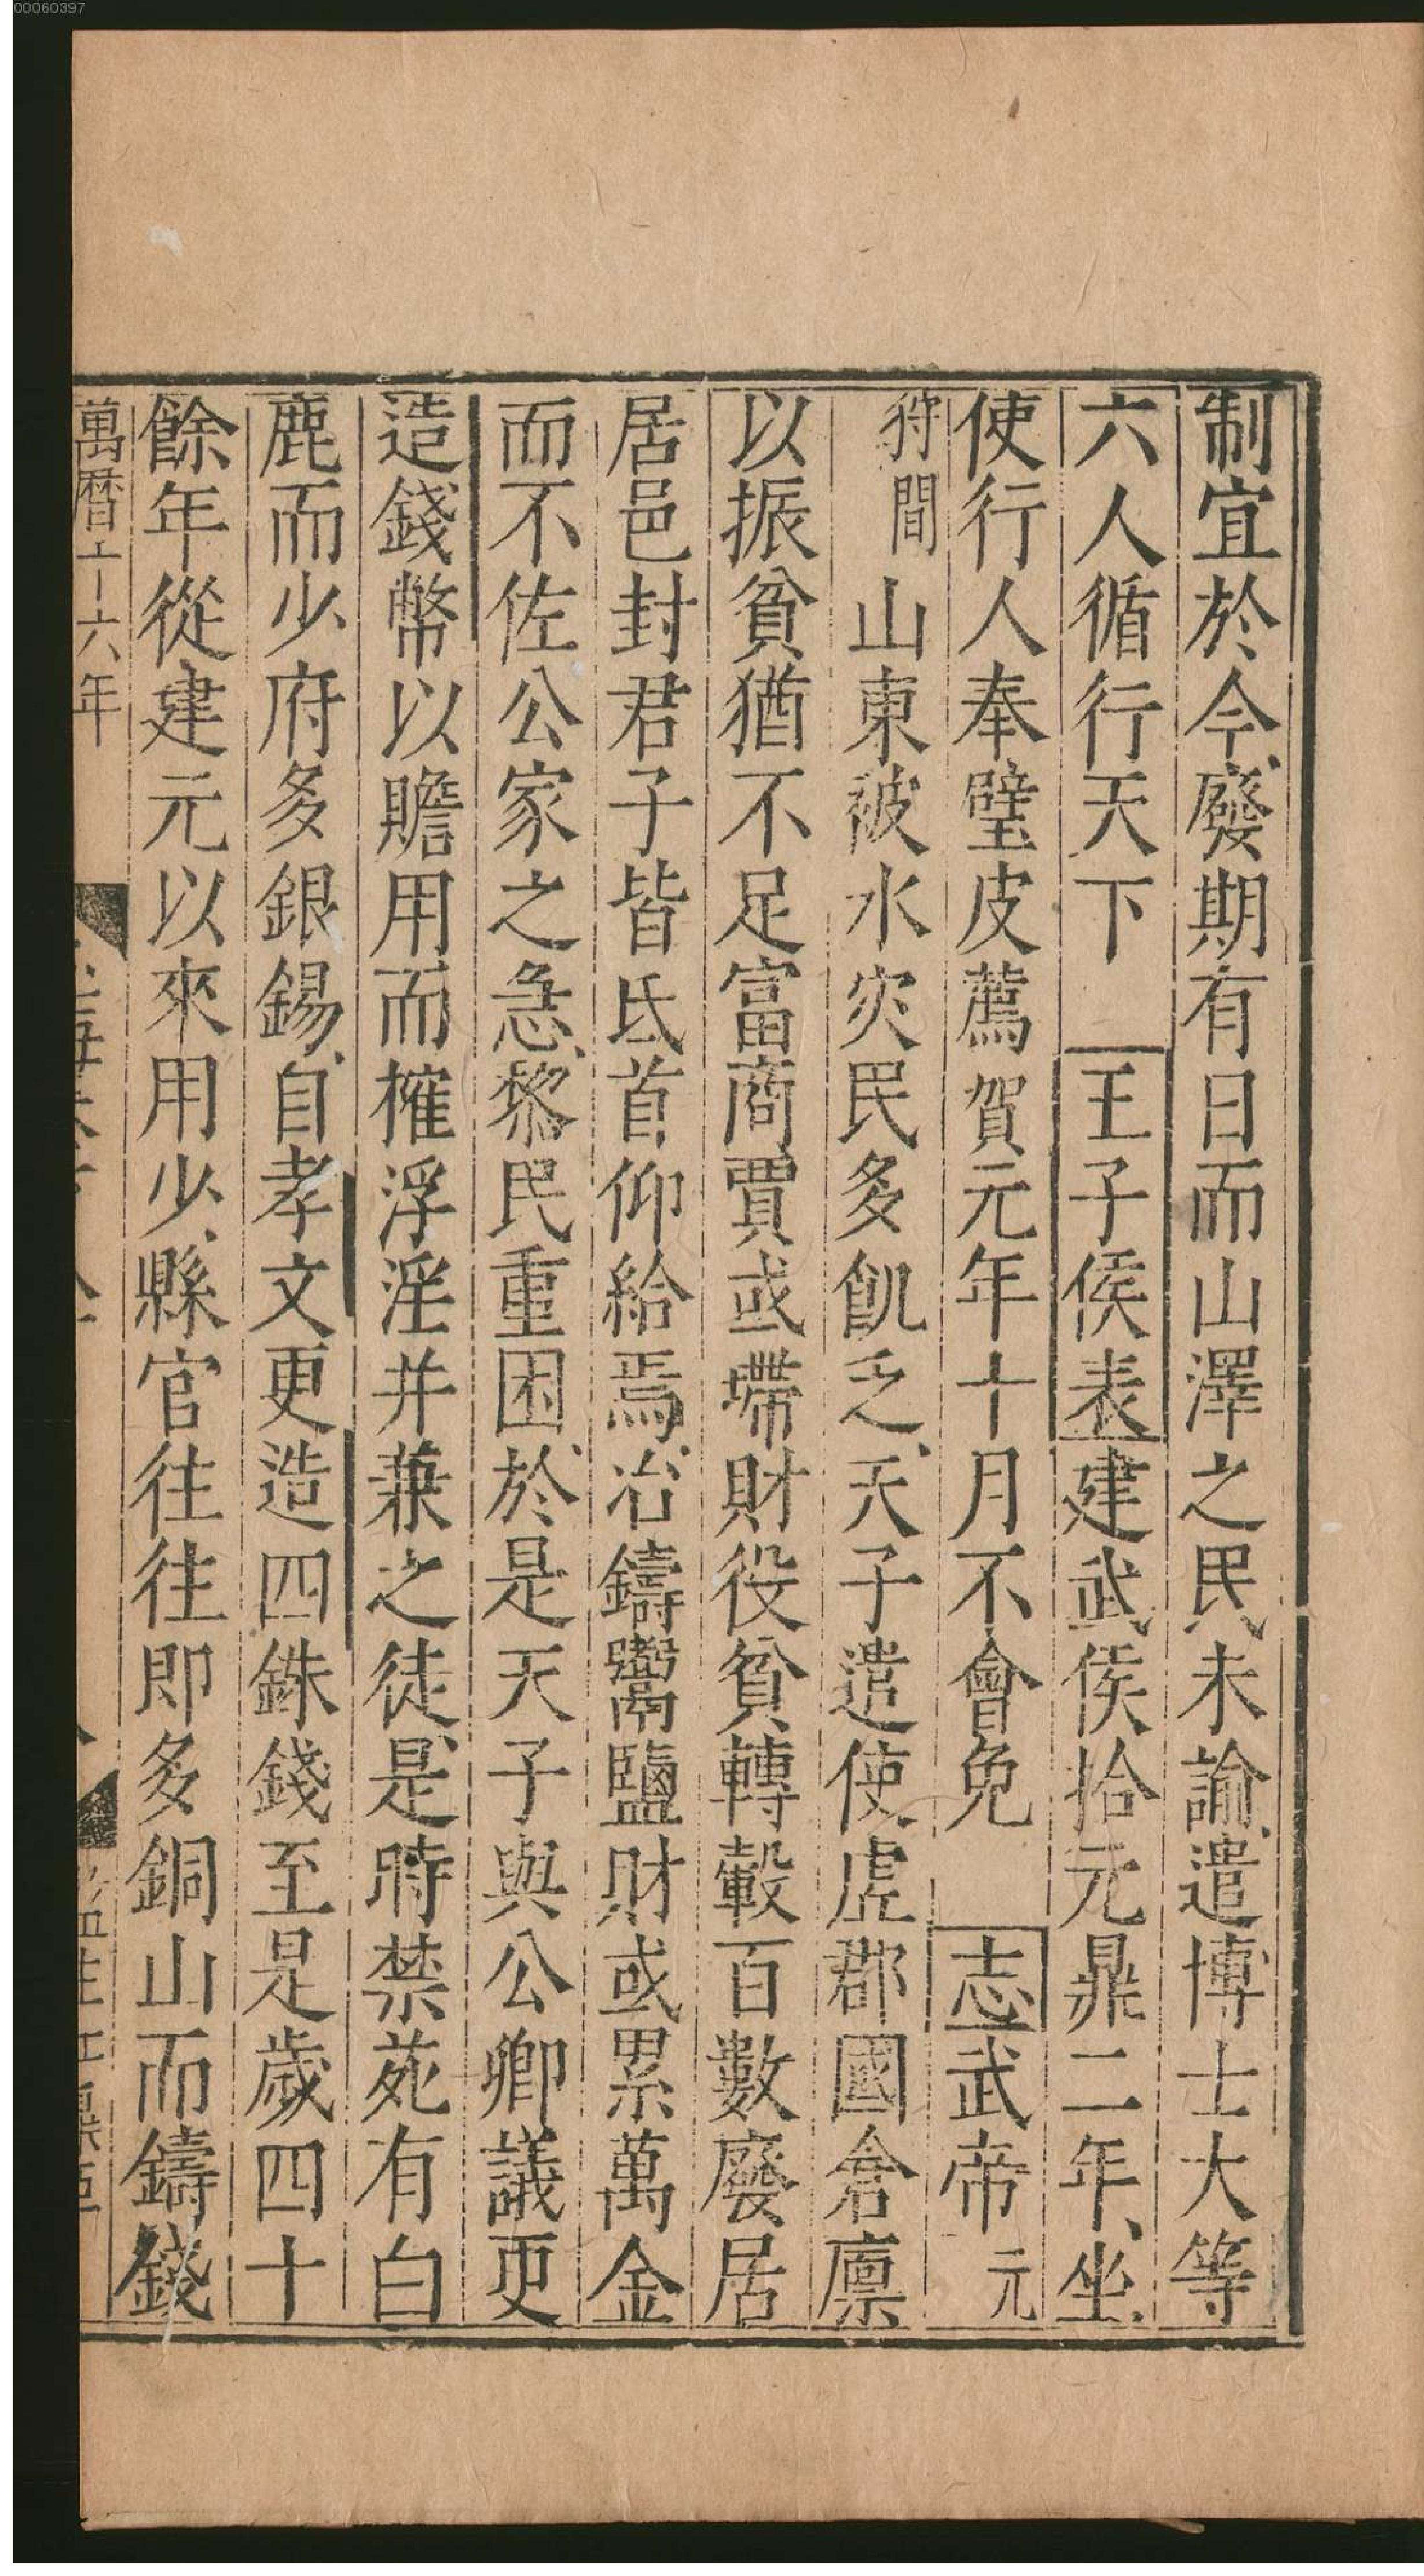 00060397
制宜於今廢期有日而山澤之民未諭遣博士大等
六人循行天下 王子侯表建武侯拾元鼎二年坐
使行人奉璧皮薦賀元年十月不會免 志武帝元
狩間山東被水灾民多飢乏天子遣使虛郡國倉廪
以振貧猶不足富商賈或墆財役貧轉轂百數廢居
居邑封君子皆氐首仰給焉冶鑄鬻鹽財或累萬金
而不佐公家之急黎民重困於是天子與公卿議更
造錢幣以贍用而摧浮淫并兼之徒是時禁苑有白
鹿而少府多銀錫自孝文更造四銖錢至是歲四十
餘年從建元以來用少縣官往往即多銅山而鑄錢
萬曆二十六年